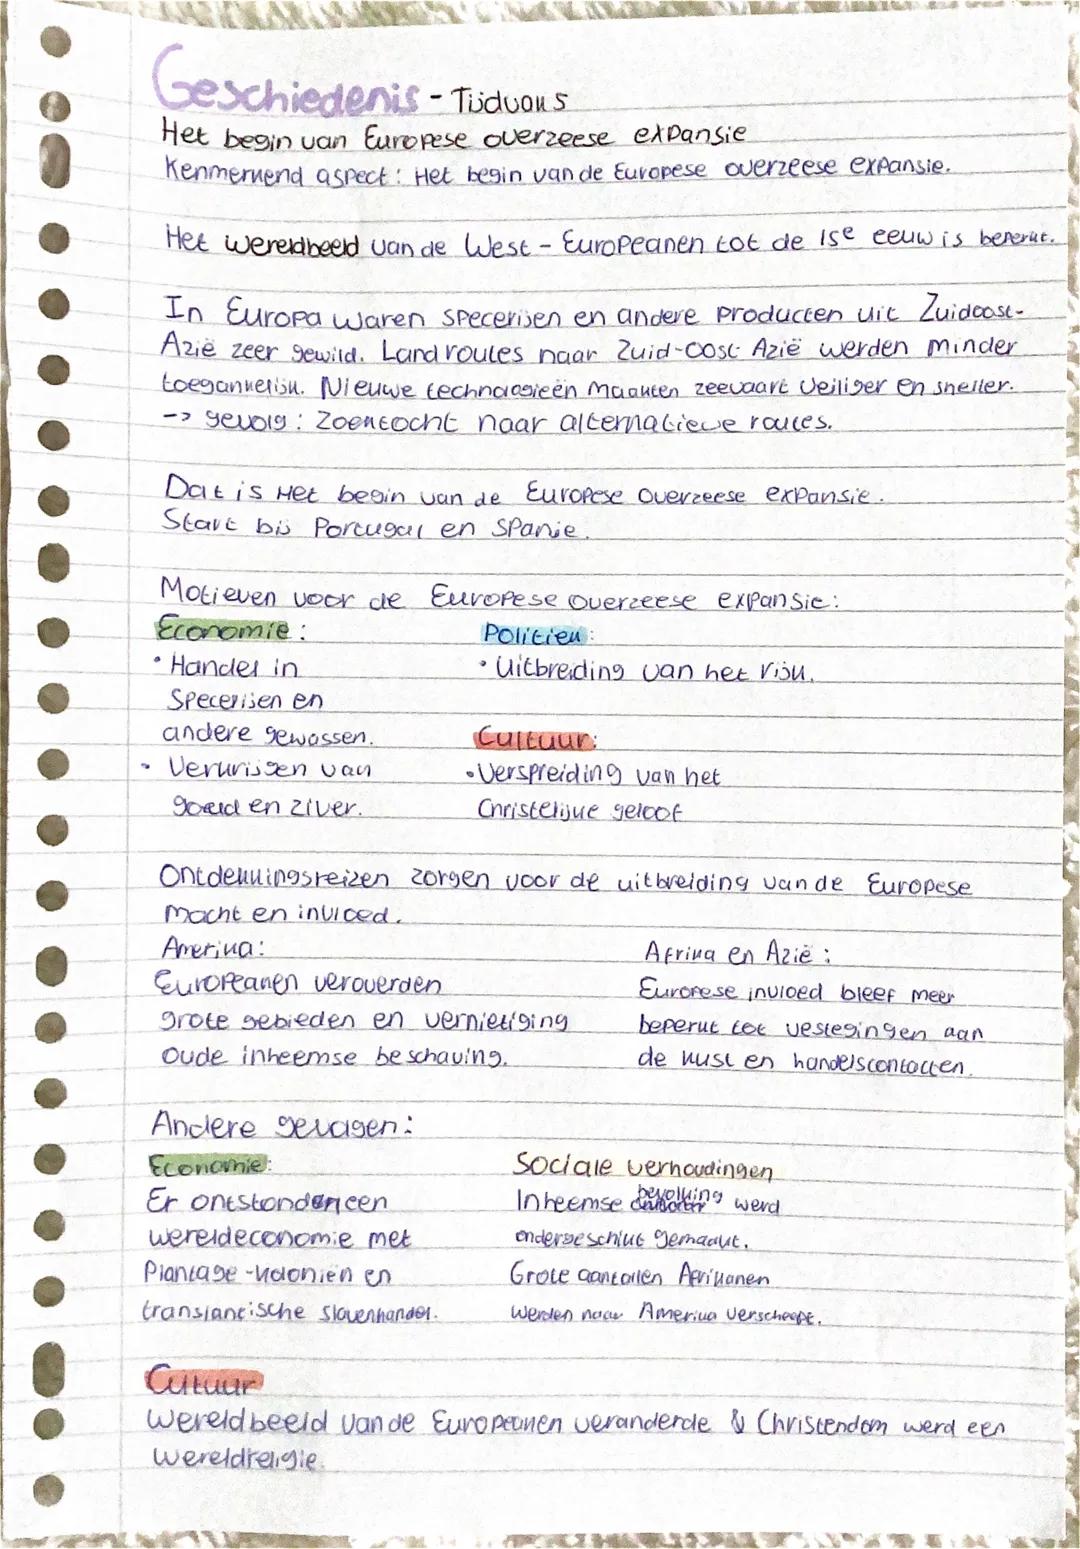 Geschiedenis - Tijdvak 5
Het begin van Europese overzeese expansie
Kenmerkend aspect: Het begin van de Europese overzeese expansie.
Het wereldbeeld van de West-Europeanen tot de 15e eeuw is beperkt.
In Europa waren specerijen en andere producten uit Zuidoost-
Azië zeer gewild. Landroutes naar Zuid-Oost Azië werden minder
toegankelijk. Nieuwe technologieën maakten zeevaart veiliger en sneller.
-> gevolg: Zoektocht naar alternatieve routes.
Dat is het begin van de Europese overzeese expansie.
Start bij Portugal en Spanje.
Motieven voor de Europese overzeese expansie:
Economie: Politiek:
• Handel in • Uitbreiding van het rijk.
specerijen en
andere gewassen. Cultuur:
• Verkrijgen van • Verspreiding van het
goud en ziver. Christelijke geloof
Ontdekkingsreizen zorgen voor de uitbreiding van de Europese
macht en invloed.
Amerika: Afrika en Azië:
Europeanen veroverden Europese invloed bleef meer
grote gebieden en vernietiging beperkt tot vestegingen aan
oude inheemse beschaving. de kust en handelscontacten.
Andere gevolgen:
Economie: Sociale verhoudingen
Er ontstonden een Inheemse bevolking werd
wereldeconomie met ondergeschikt gemaakt.
Plantage-koloniën en Grote aantallen Afrikanen
translantische slavenhandel. werden naar Amerika verscheept.
Cultuur
Wereldbeeld van de Europeanen veranderde & Christendom werd een
wereldreligie.